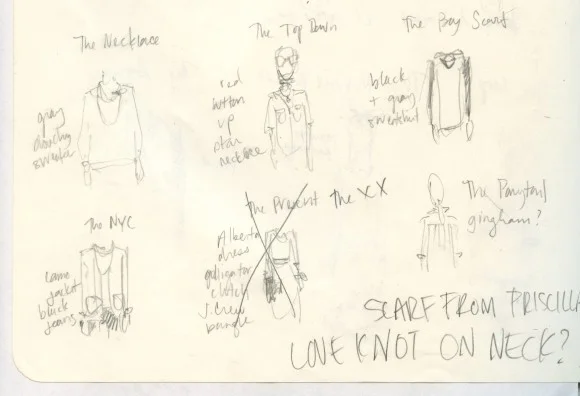 The Necklace
gray
slouchy
sweater
The Top Down
red
button
up
star
necklace
The Boy Scout
black
+ gray
sweatshirt
The NYC
camo
jacket
black
jeans
The Present
The XX
Alberta
dress
alligator
clutch
J.Crew
bangle
The Ponytail
gingham?
SCARF FROM PRISCILLA
LOVE KNOT ON NECK?